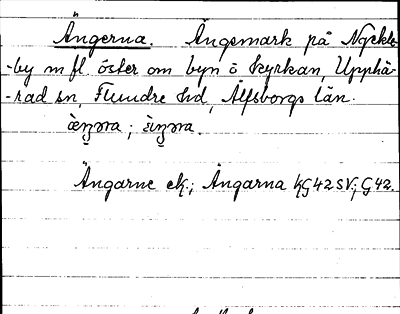 Ängerna. Ängsmark på Nyckle-
-by m fl öster om byn o kyrkan, Upphä-
-rad sn, Flundre hd, Älfsborgs län.
Ängarne ek; Ängarna kG42SV; G42.